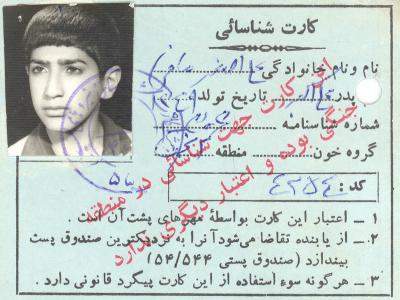 کارت شناسائی
نام و نام خانوادگی
پدر تاریخ تولد
شماره شناسنامه
گروه خون منطقه
کد: ٤٢٥٤
این کارت جهت شناسائی در منطقه
جنگی بوده و اعتبار دیگری ندارد
١ ـ اعتبار این کارت بواسطهٔ مهرهای پشت آن است .
٢ ـ از یابنده تقاضا میشود آنرا به نزدیکترین صندوق پست
بیندازد (صندوق پستی ٥٤/٥٤٤)
٣ ـ هرگونه سوء استفاده از این کارت پیگرد قانونی دارد .